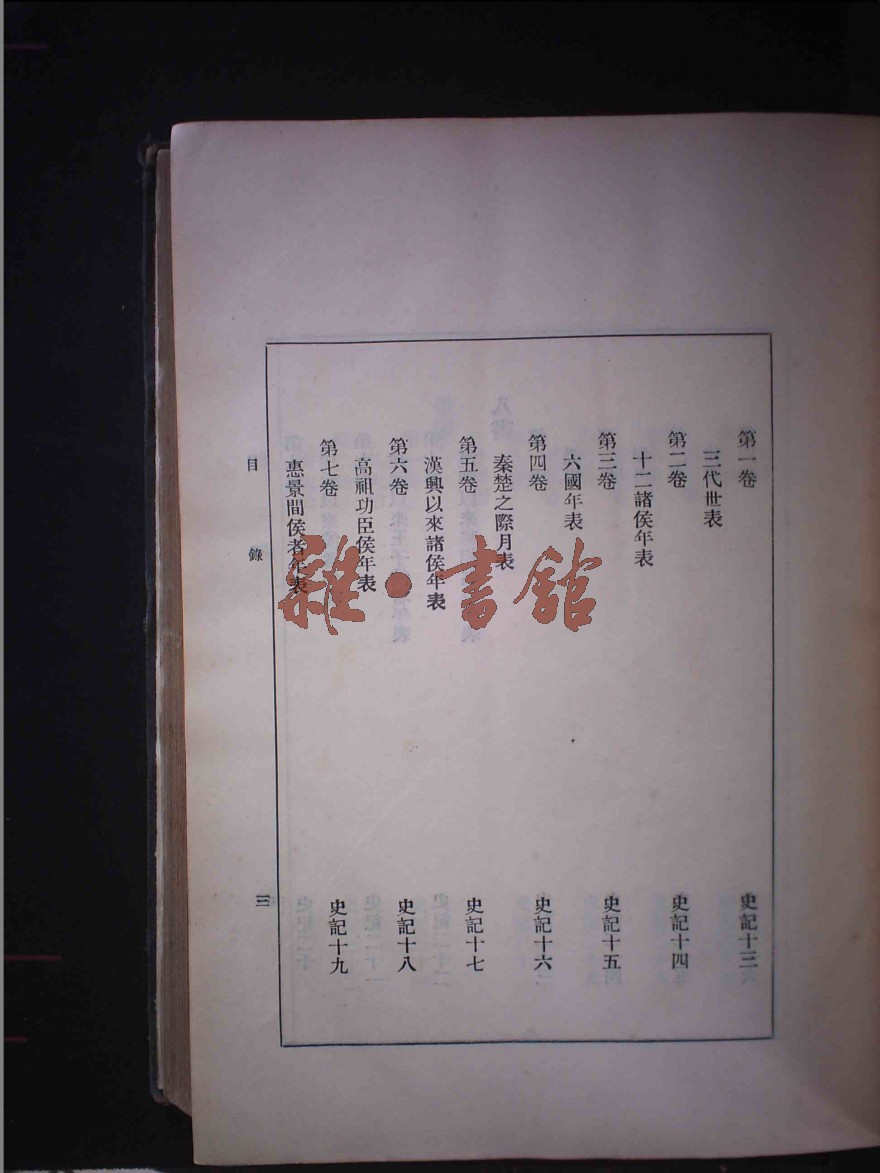 第一卷 史記十三
三代世表
第二卷 史記十四
十二諸侯年表
第三卷 史記十五
六國年表
第四卷 史記十六
秦楚之際月表
第五卷 史記十七
漢興以來諸侯年表
第六卷 史記十八
高祖功臣侯年表
第七卷 史記十九
惠景間侯者年表
目錄 三
雜·書館